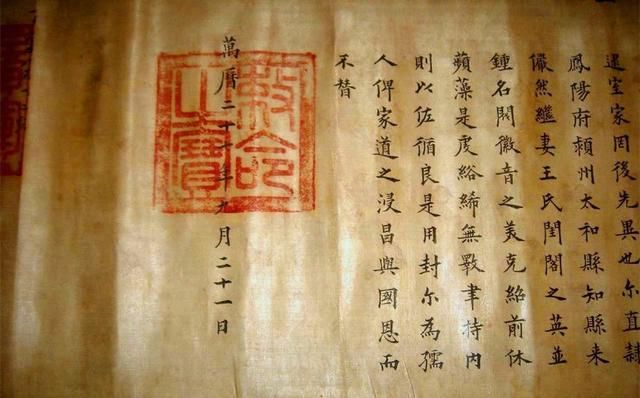 逮室家罔後先異也尔直隸
鳳陽府潁州太和縣知縣来
儼然繼妻王氏閨閤之英並
鍾名閥徽音之美克紹前休
蘋藻是虔綌絺無斁聿持内
則以佐循良是用封尔為孺
人俾家道之浸昌與國恩而
不替
萬曆二十年九月二十一日
敕命之寶